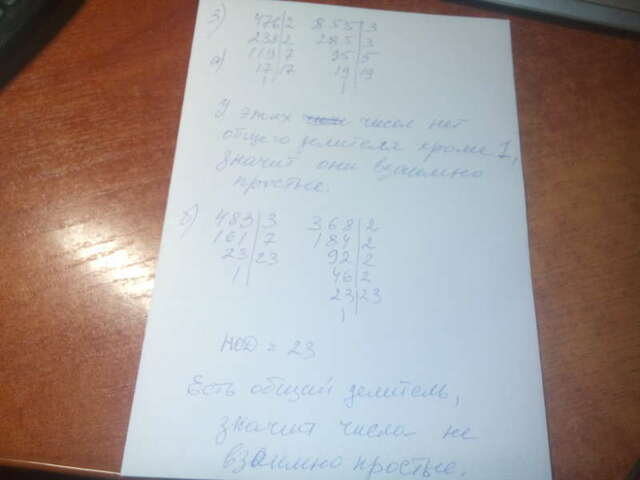 3) 476|2 855|3
238|2 285|3
а) 119|7 95|5
17|17 19|19
1 1
У этих числ нет
общего делителя кроме 1,
значит они взаимно
простые.
б) 483|3 368|2
161|7 184|2
23|23 92|2
1 46|2
23|23
1
НОД = 23
Есть общий делитель,
значит числа не
взаимно простые.